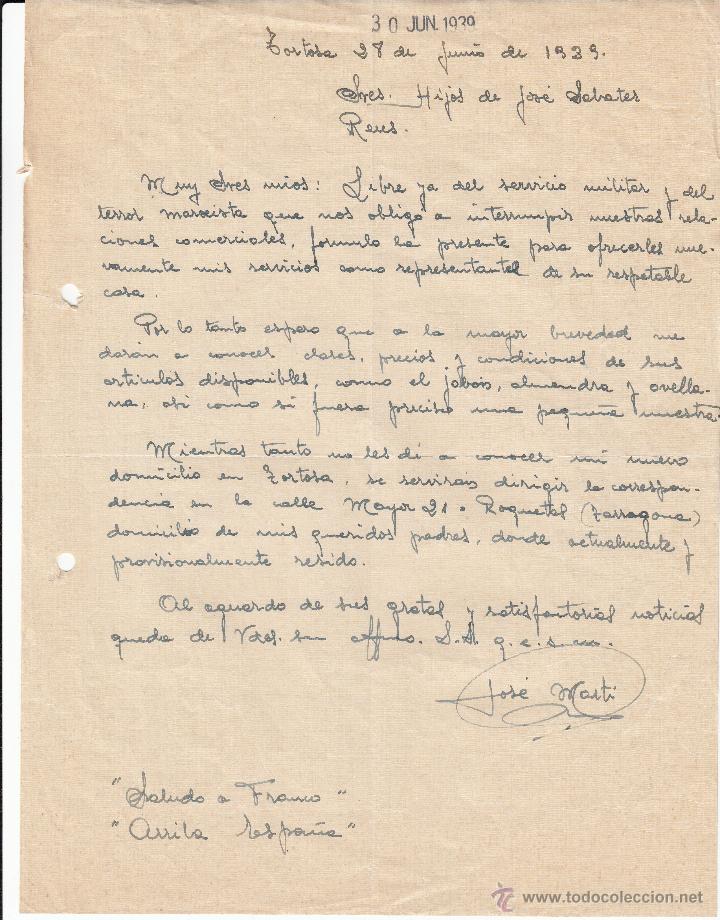 30 JUN. 1939
Tortosa 27 de Junio de 1939.
Sres. Hijos de José Sabater
Reus.
Muy Sres mios: Libre ya del servicio militar y del
terror marxista que nos obligó a interrumpir nuestras rela-
ciones comerciales, formulo la presente para ofrecerles nue-
vamente mis servicios como representante de su respetable
casa.
Por lo tanto espero que a la mayor brevedad me
darán a conocer clases, precios y condiciones de sus
articulos disponibles, como el jabón, almendra y avella-
na, asi como si fuera preciso una pequeña muestra.
Mientras tanto no les dé a conocer mi nuevo
domicilio en Tortosa, se servirán dirigir la correspon-
dencia en la calle Mayor 21 - Roquetas (Tarragona)
domicilio de mis queridos padres, donde actualmente y
provisionalmente resido.
Al aguardo de sus gratas y satisfactorias noticias
queda de Vdes. su affmo. S.S. q.e.s.m.
José Marti
"Saludo a Franco"
"Arriba España"
www.todocoleccion.net